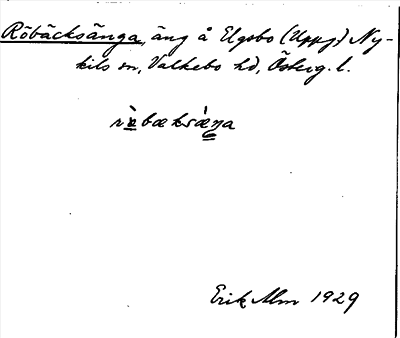 Röbäcksänga, äng å Elgsbo (Uppg) Ny-
kils sn, Valkebo hd, Österg. l.
Erik Alm 1929